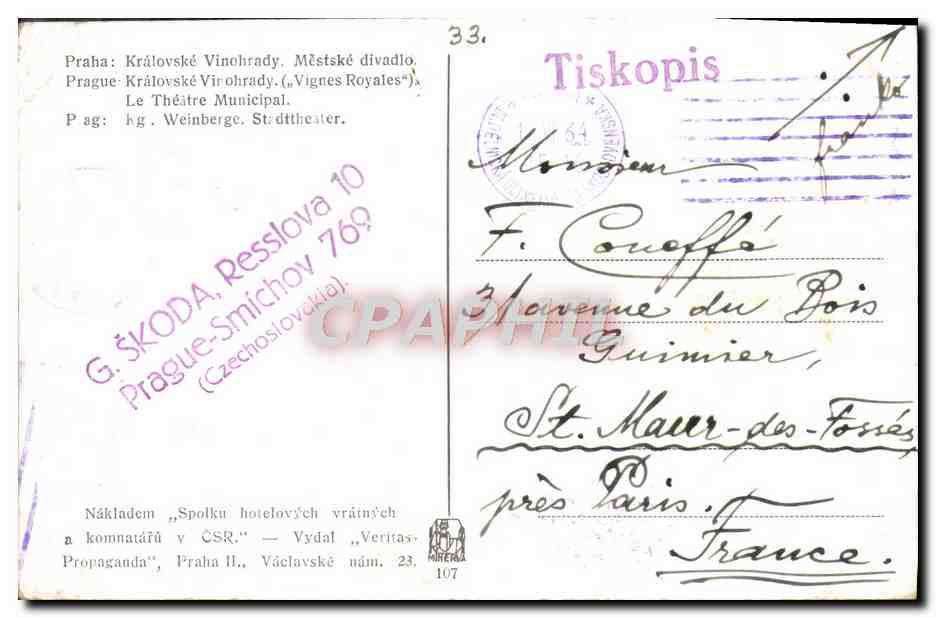 33.
Praha: Královské Vinohrady. Městské divadlo.
Prague: Královské Vinohrady. („Vignes Royales").
Le Théâtre Municipal.
P ag: Kg. Weinberge. Stadttheater.
Tiskopis
franko
G. ŠKODA, Resslova 10
Prague-Smíchov 769
(Czechoslovakia).
Monsieur
F. Coneffé
31 avenue du Bois
Guimier,
St. Maur-des-Fossés
près Paris.
France.
CPAPHIL
Nákladem „Spolku hotelových vrátných
a komnatářů v ČSR." — Vydal „Veritas-
Propaganda", Praha II., Václavské nám. 23.
MINERVA
107